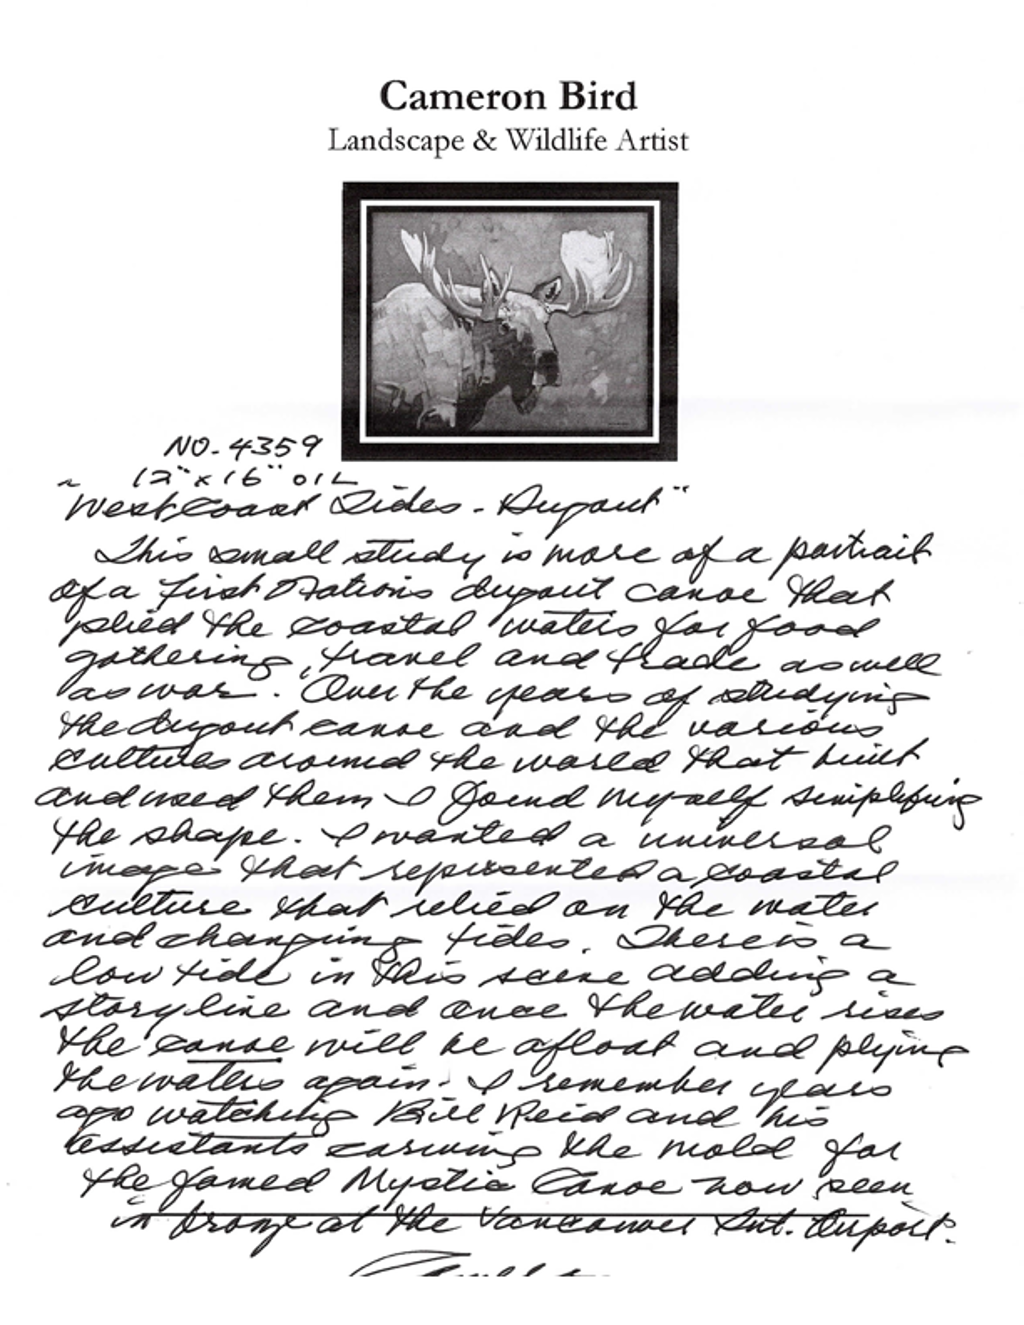 Cameron Bird
Landscape & Wildlife Artist
NO. 4359
12" x 16" OIL
"West Coast Tides - Dugout"
This small study is more of a portrait
of a First Nations dugout canoe that
plied the coastal waters for food
gathering, travel and trade as well
as war. Over the years of studying
the dugout canoe and the various
cultures around the world that built
and used them I found myself simplifying
the shape. I wanted a universal
image that represented a coastal
culture that relied on the water
and changing tides. There is a
low tide in this scene adding a
storyline and once the water rises
the canoe will be afloat and plying
the waters again. I remember years
ago watching Bill Reid and his
assistants carving the mold for
the famed Mystic Canoe now seen
in bronze at the Vancouver Int. Airport.